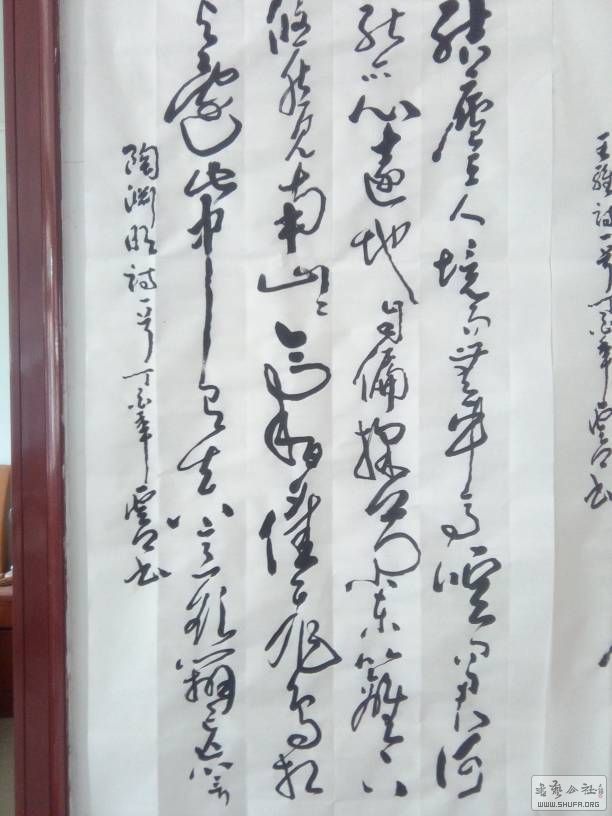 王維詩一首丁酉年書
結廬在人境而無車馬喧問君何
能爾心遠地自偏採菊東籬下
悠然見南山〻氣日夕佳飛鳥相
與還此中有真意欲辨已忘言
陶淵明詩一首丁酉年書
WWW.SHUFA.ORG